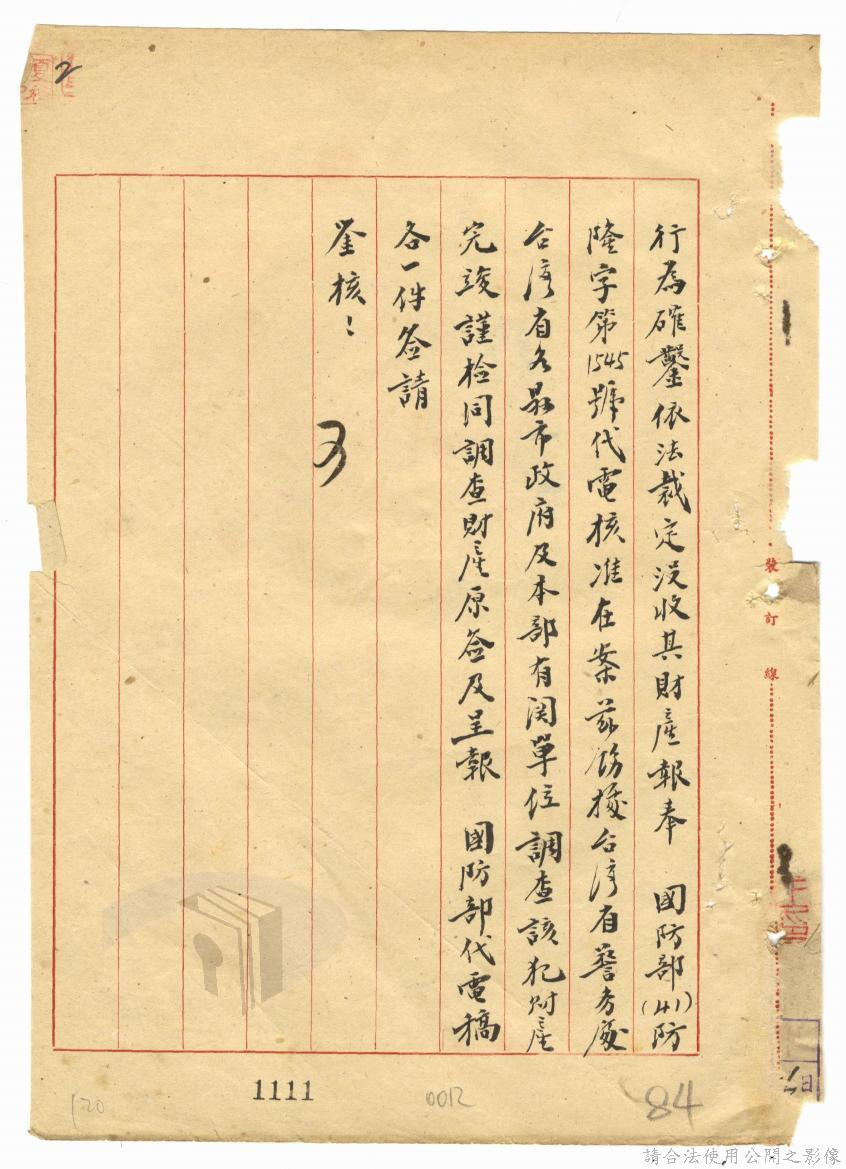 2
行為確鑿依法裁定没收其財產報奉　國防部(41)防
隆字第1545號代電核准在案茲飭據台湾省警务處
台湾省各縣市政府及本部有関單位調查該犯財產
完竣謹檢同調查財產原签及呈報　國防部代電稿
各一件签請
鉴核！
裝訂線
日
120
1111
0012
84
請合法使用公開之影像